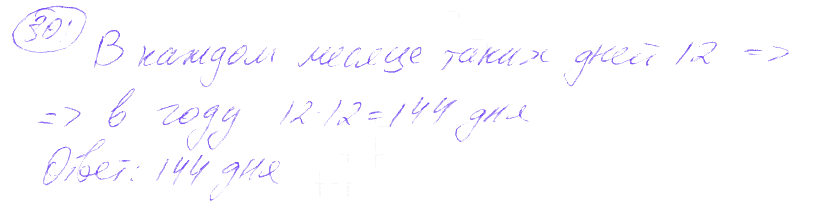 30.
В каждом месяце таких дней 12 =>
=> в году 12·12=144 дня
Ответ: 144 дня